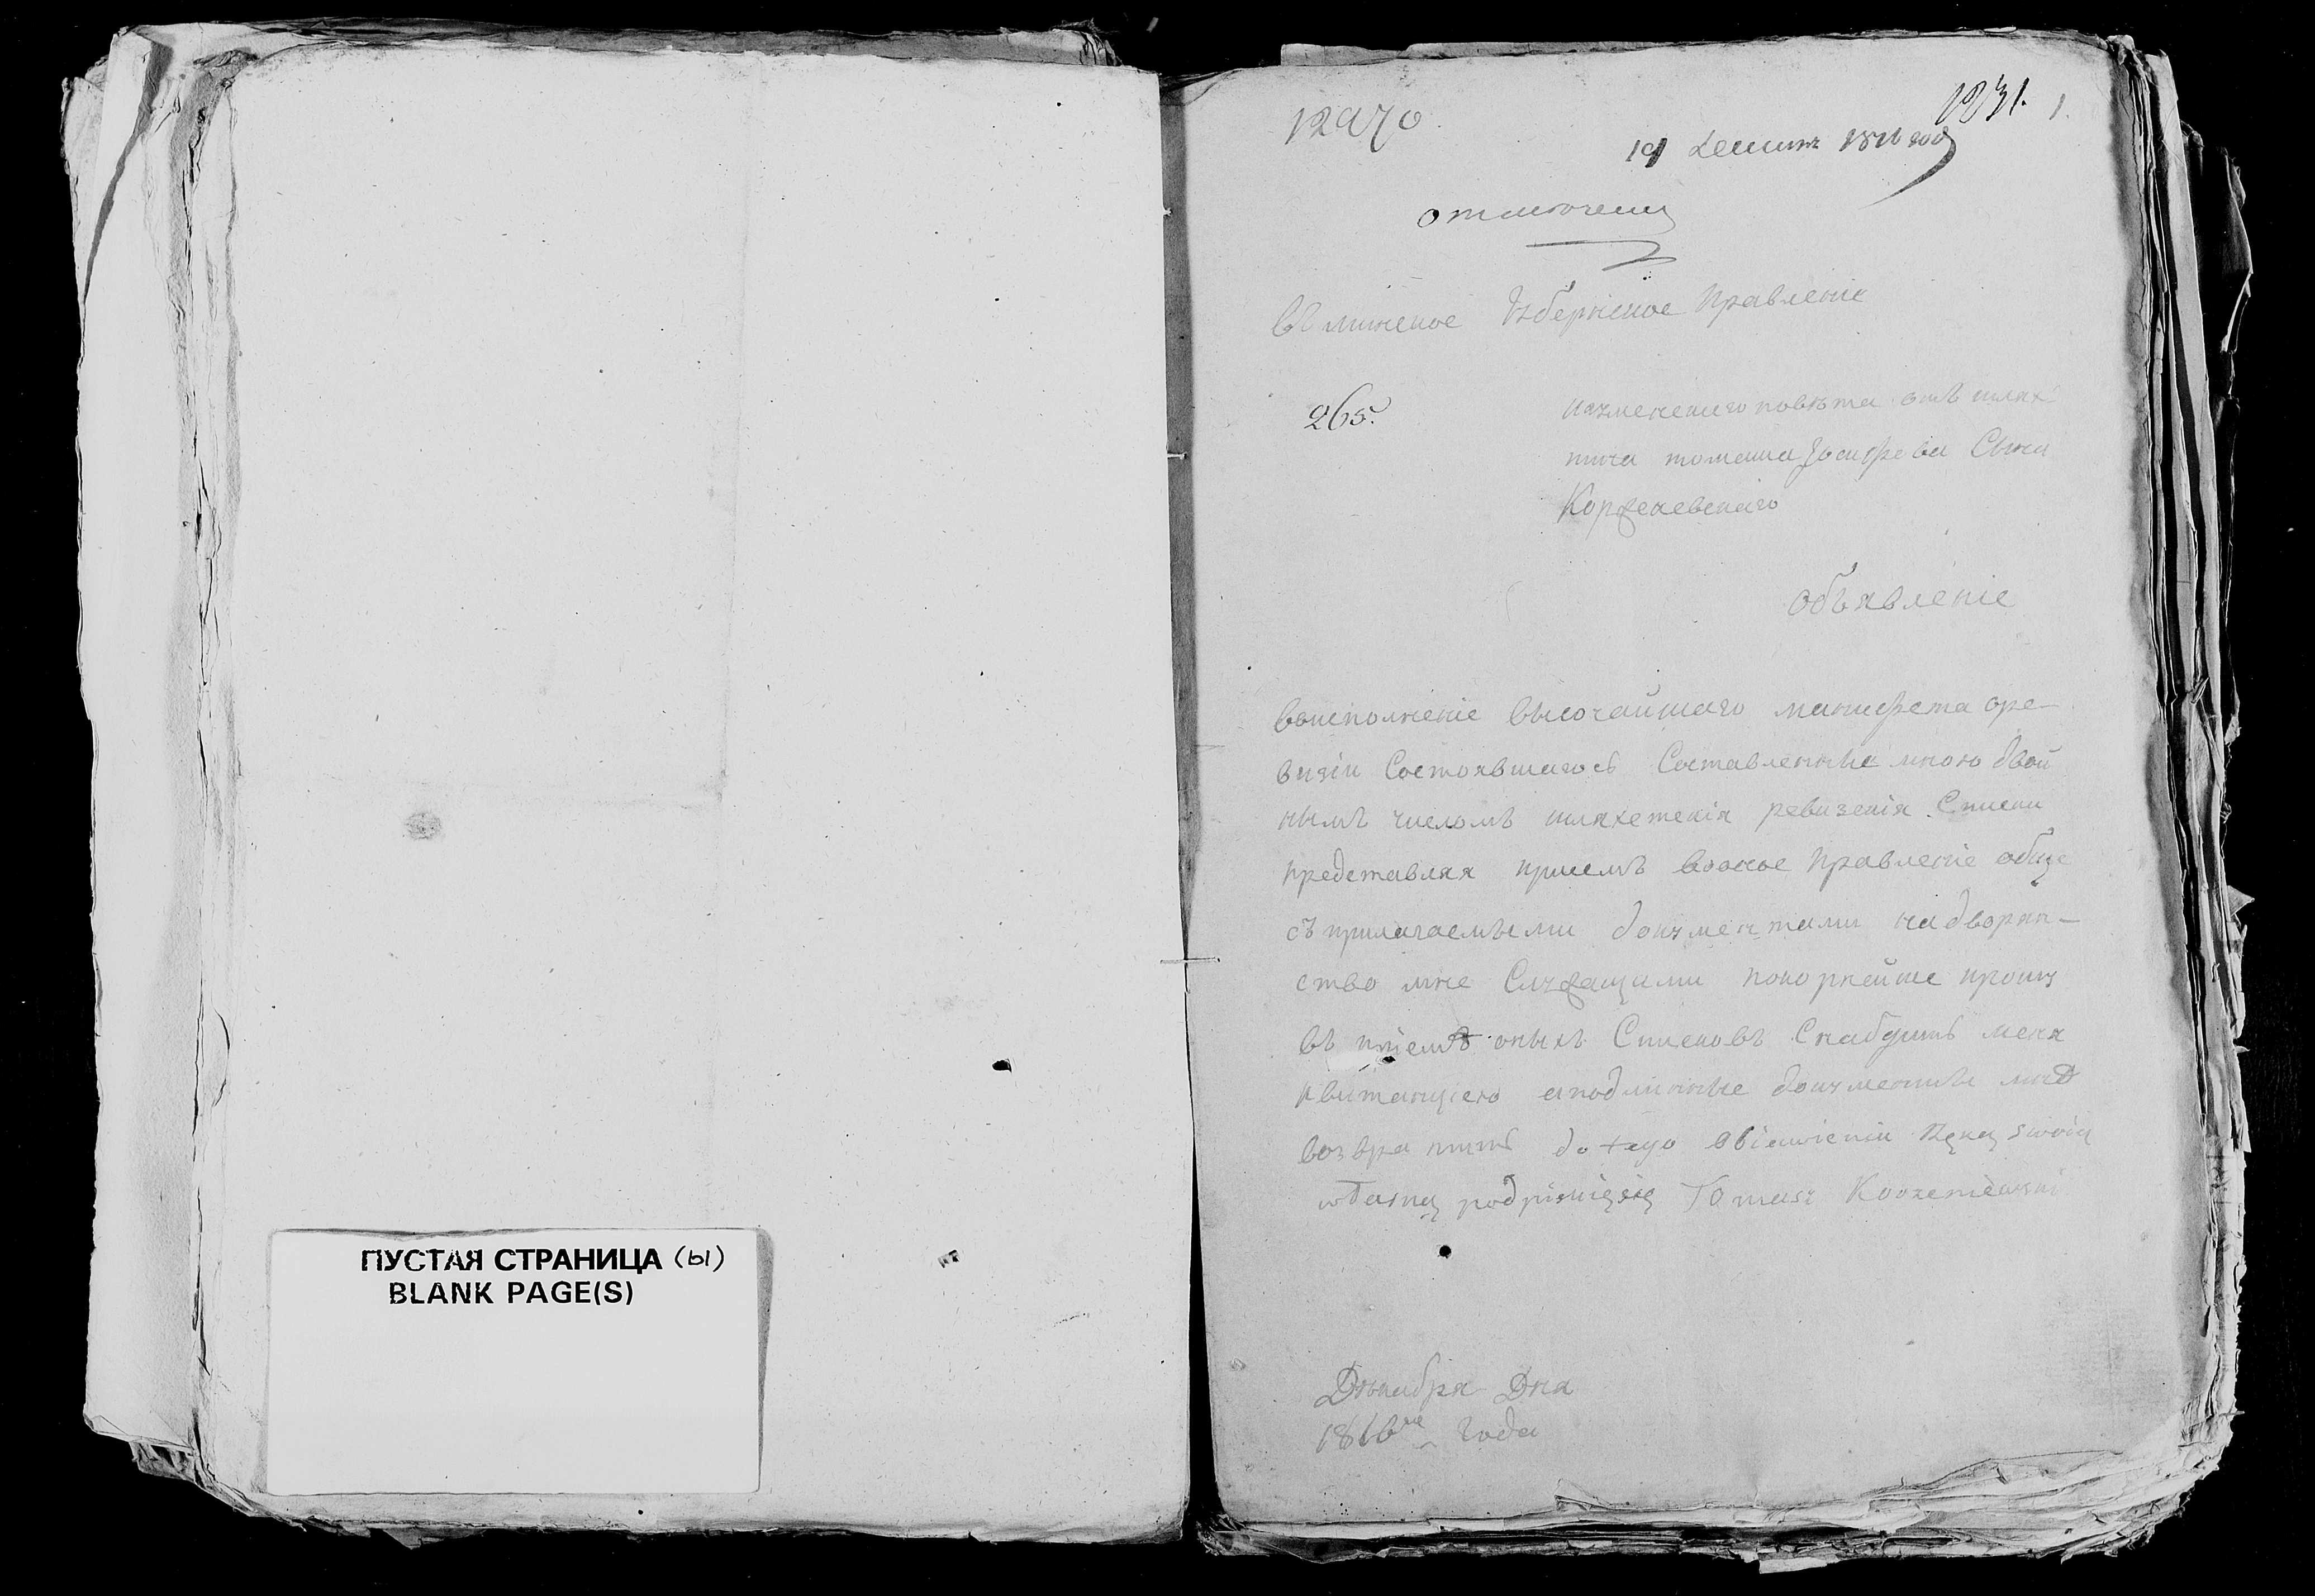 ПУСТАЯ СТРАНИЦА (ы)
BLANK PAGE(S)
12970.
1831. 1.
19 1816 года
въ минское Губернское Правление
265.
отъ шлях
тича томаша Іосифова Сына
Корженевскаго
Объявленіе
воисполненіе высочайшаго манифеста оре-
визіи Состоявшагося Составленные мною двой
нымъ числомъ шляхетскія ревизскія Списки
представляя присемъ вооное Правленіе обще
съ прилагаемыми документами на дворян-
ство мне Служащими покорнейше прошу
въ приемѣ оныхъ Списковъ Снабдить меня
квитанциею аподлинные документы мнѣ
возвратить do tego obiawienia Ręką swoią
własną podpisuię się Tomasz Korzeniewski
Декабря Дня
1816го года